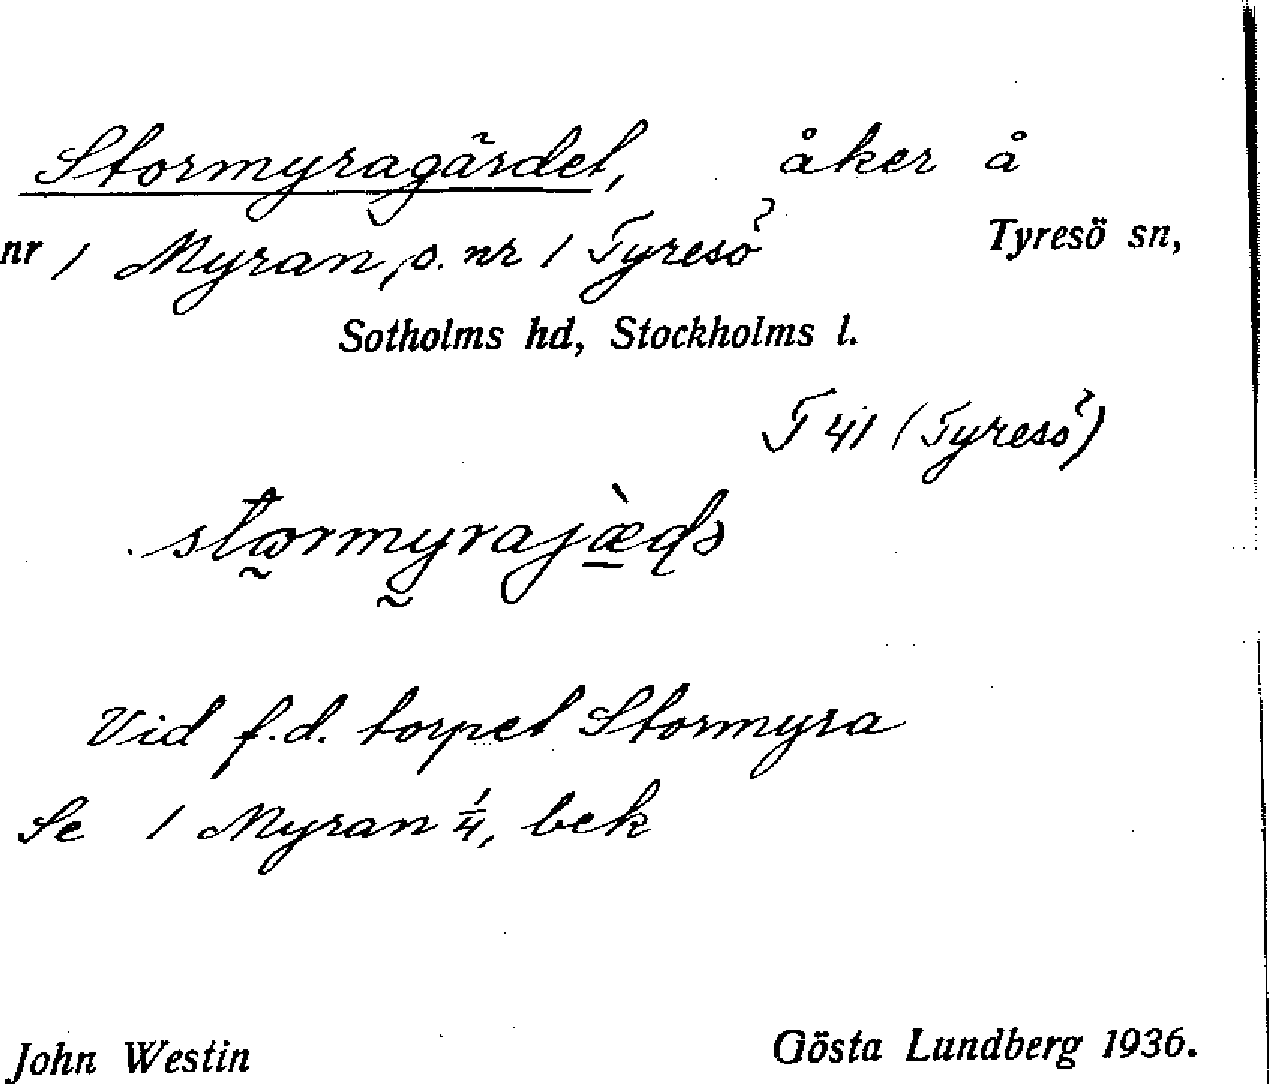 Stormyragärdet, åker å
nr 1 Myran, o. nr 1 Tyresö Tyresö sn,
Sotholms hd, Stockholms l.
F 41 (Tyresö)
Vid f.d. torpet Stormyra
Se 1 Myran 1/4, bek
John Westin Gösta Lundberg 1936.